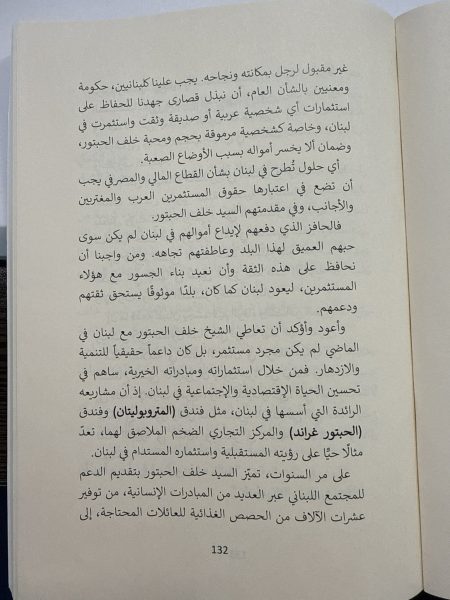 غير مقبول لرجل بمكانته ونجاحه. يجب علينا كلبنانيين، حكومة
ومعنيين بالشأن العام، أن نبذل قصارى جهدنا للحفاظ على
استثمارات أي شخصية عربية أو صديقة وثقت واستثمرت في
لبنان، وخاصة كشخصية مرموقة بحجم ومحبة خلف الحبتور،
وضمان ألا يخسر أمواله بسبب الأوضاع الصعبة.
أي حلول تُطرح في لبنان بشأن القطاع المالي والمصرفي يجب
أن تضع في اعتبارها حقوق المستثمرين العرب والمغتربين
والأجانب، وفي مقدمتهم السيد خلف الحبتور.
فالحافز الذي دفعهم لإيداع أموالهم في لبنان لم يكن سوى
حبهم العميق لهذا البلد وعاطفتهم تجاهه. ومن واجبنا أن
نحافظ على هذه الثقة وأن نعيد بناء الجسور مع هؤلاء
المستثمرين، ليعود لبنان كما كان، بلدًا موثوقًا يستحق ثقتهم
ودعمهم.
وأعود وأؤكد أن تعاطي الشيخ خلف الحبتور مع لبنان في
الماضي لم يكن مجرد مستثمر، بل كان داعماً حقيقياً للتنمية
والازدهار. فمن خلال استثماراته ومبادراته الخيرية، ساهم في
تحسين الحياة الإقتصادية والإجتماعية في لبنان. إذ أن مشاريعه
الرائدة التي أسسها في لبنان، مثل فندق (المتروبوليتان) وفندق
(الحبتور غراند) والمركز التجاري الضخم الملاصق لهما، تعدّ
مثالًا حيًّا على رؤيته المستقبلية واستثماره المستدام في لبنان.
على مر السنوات، تميّز السيد خلف الحبتور بتقديم الدعم
للمجتمع اللبناني عبر العديد من المبادرات الإنسانية، من توفير
عشرات الآلاف من الحصص الغذائية للعائلات المحتاجة، إلى
132